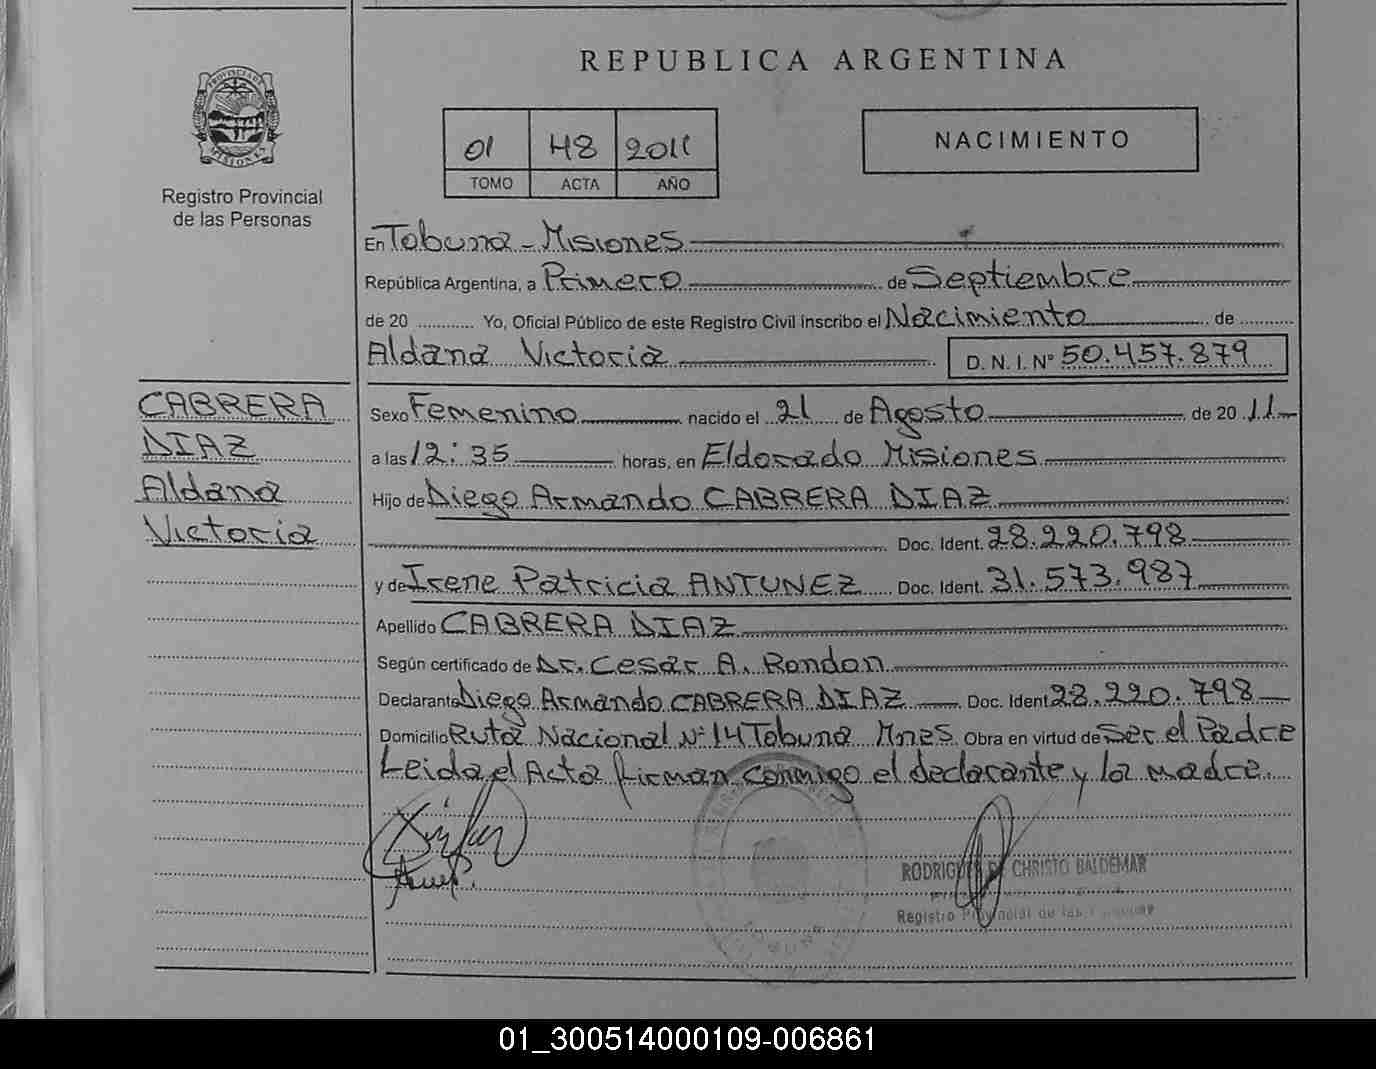 REPUBLICA ARGENTINA
PROVINCIA DE
MISIONES
Registro Provincial
de las Personas
01 48 2011
TOMO ACTA AÑO
NACIMIENTO
En Tobuna - Misiones
República Argentina, a Primero de Septiembre
de 20 ............ Yo, Oficial Público de este Registro Civil inscribo el Nacimiento de
Aldana Victoria D. N. I. Nº 50.457.879
CABRERA
DIAZ
Aldana
Victoria
Sexo Femenino nacido el 21 de Agosto de 20 11
a las 12:35 horas, en Eldorado Misiones
Hijo de Diego Armando CABRERA DIAZ
Doc. Ident. 28.220.798
y de Irene Patricia ANTUNEZ Doc. Ident. 31.573.987
Apellido CABRERA DIAZ
Según certificado de Dr. Cesar A. Rondan
Declarante Diego Armando CABRERA DIAZ Doc. Ident. 28.220.798
Domicilio Ruta Nacional Nº 14 Tobuna Mnes Obra en virtud de Ser el Padre
Leida el Acta firman conmigo el declarante y la madre.
RODRIGUEZ DE CHRISTO BALDEMAR
Registro Provincial de las Personas
01_300514000109-006861